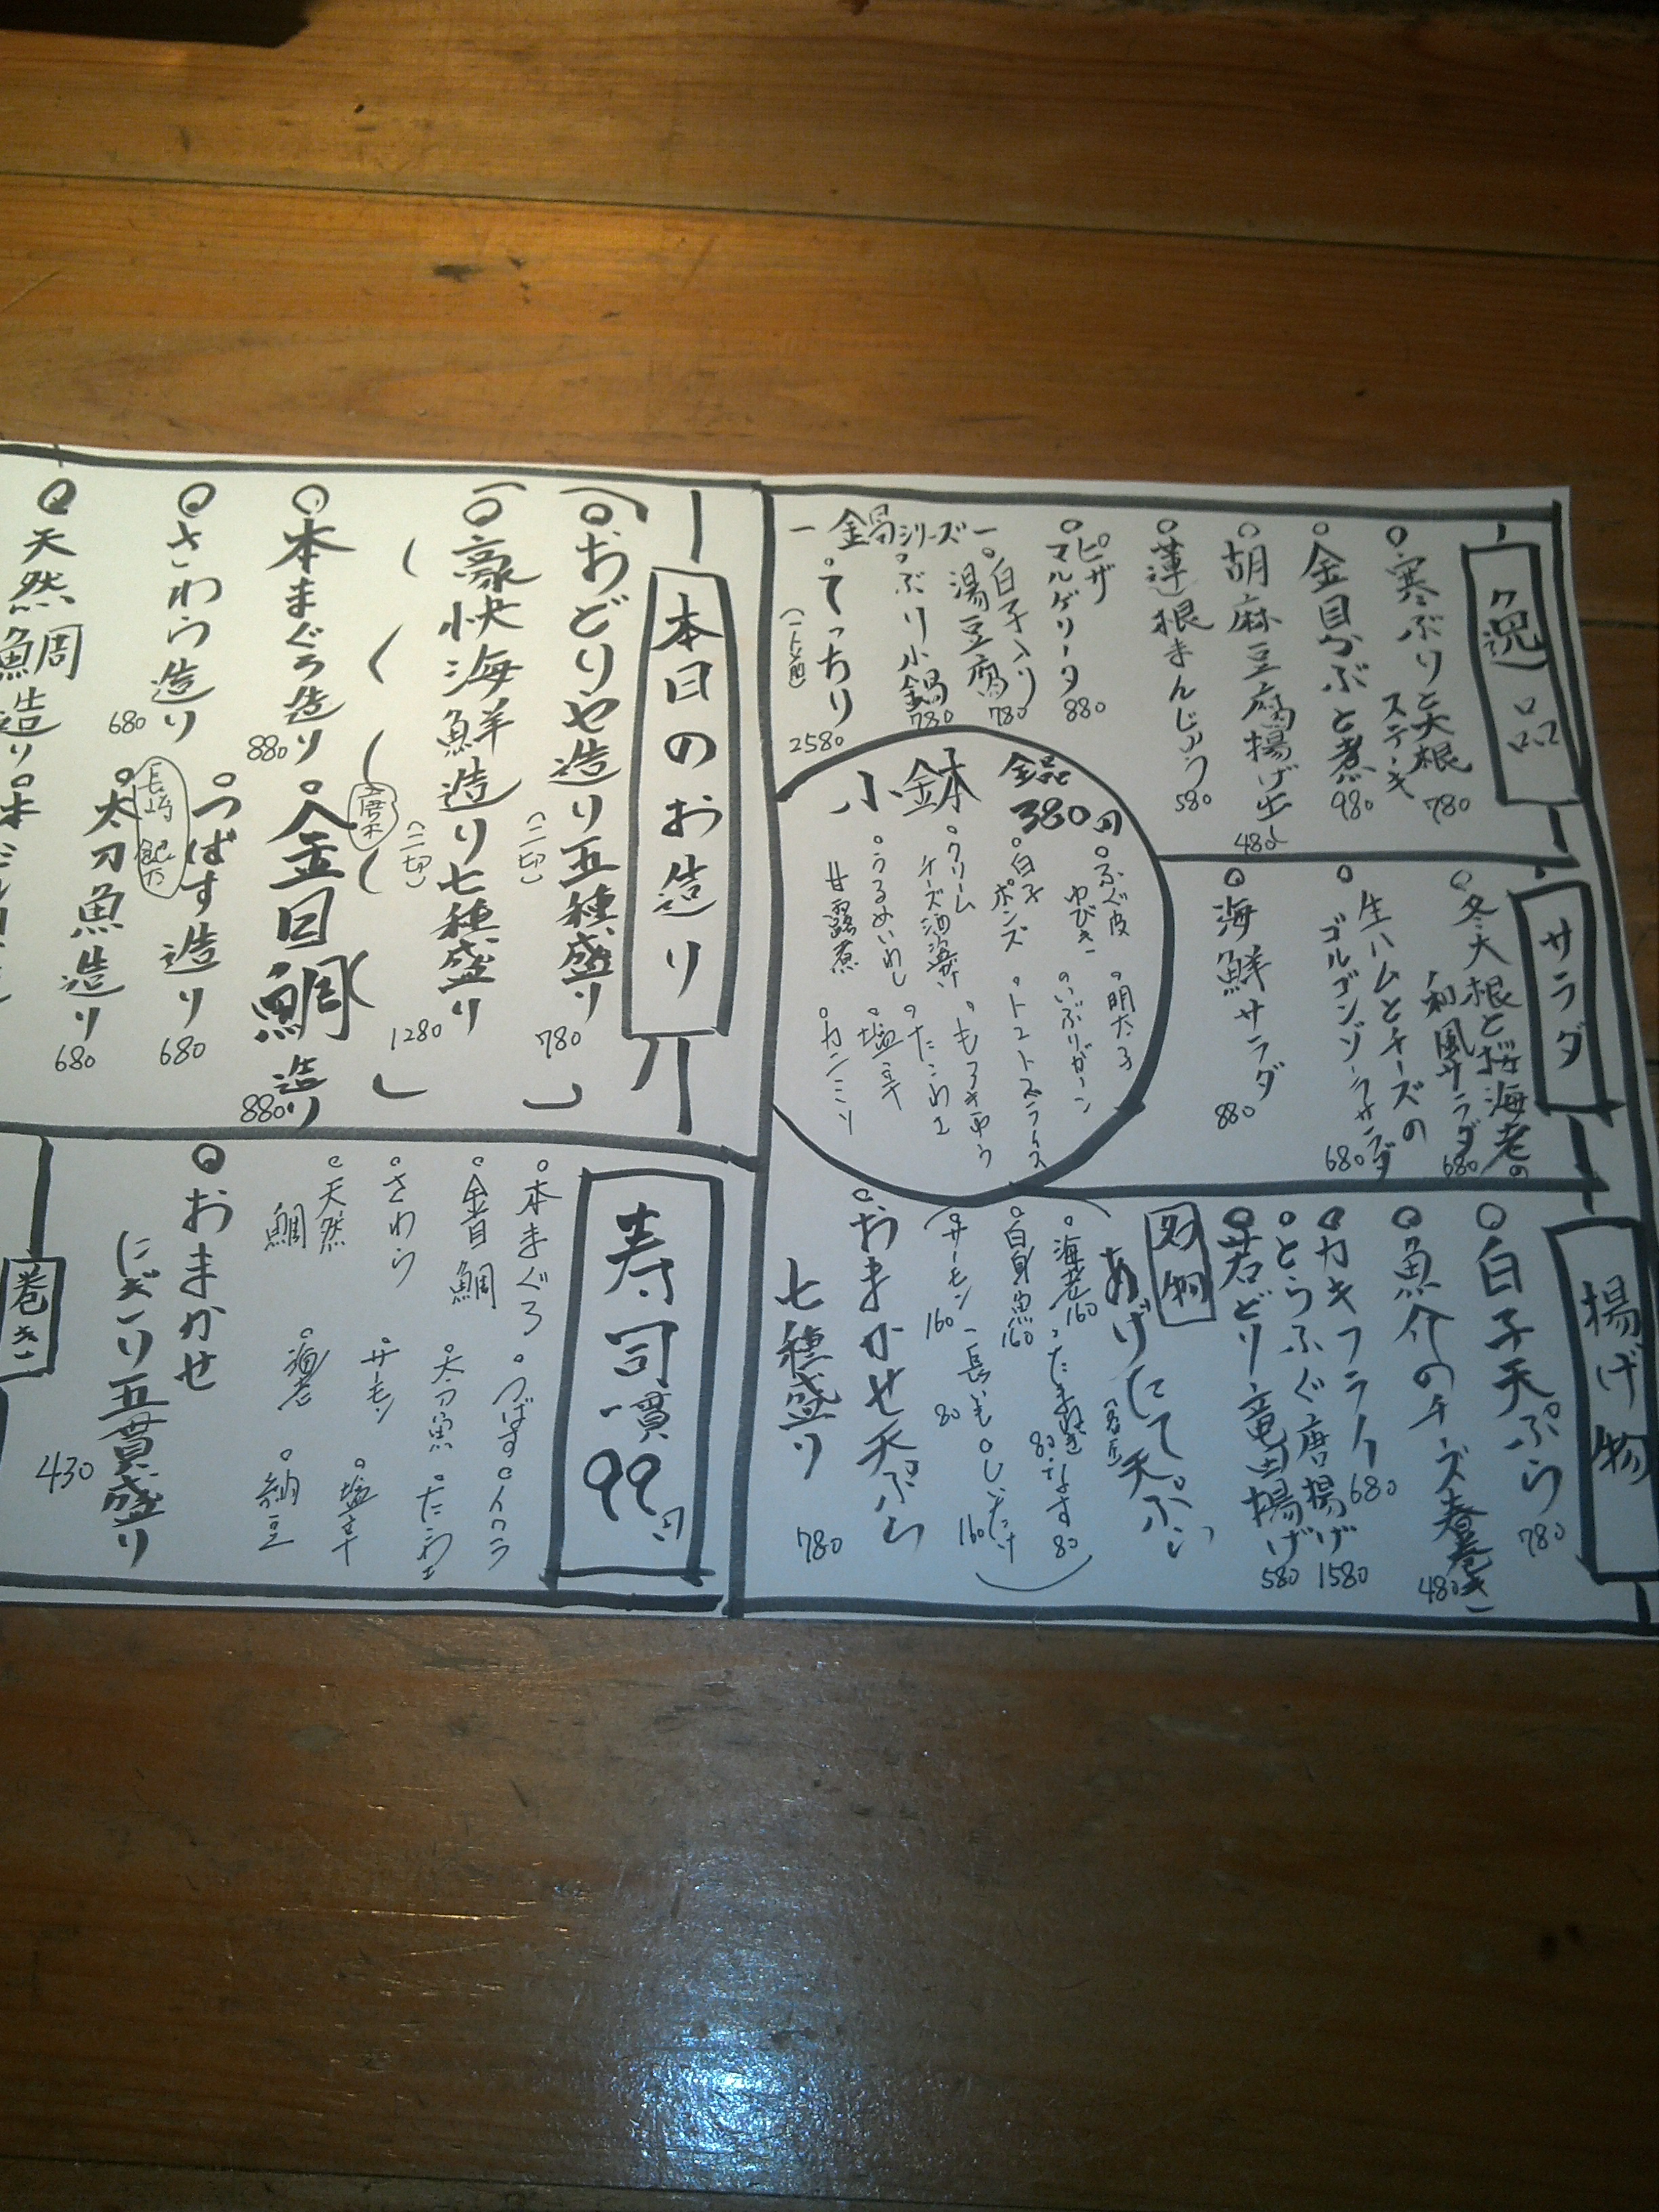 逸品
寒ぶりと大根
ステーキ
780
金目かぶと煮
980
胡麻豆腐揚げ出し
480
蓮根まんじゅう
580
ピザ
マルゲリータ
880
鍋シリーズ
白子入り
湯豆腐
780
ぶり小鍋
780
てっちり
(一人前)
2580
小鉢 全品
380円
ふぐ皮
ゆびき
明太子
白子
ポンズ
いぶりがっこ
クリーム
チーズ酒盗
トマトスライス
もろきゅう
うるめいわし
甘露煮
たこわさ
塩辛
カニミソ
サラダ
冬大根と桜海老の
和風サラダ
680
生ハムとチーズの
ゴルゴンゾーラサラダ
680
海鮮サラダ
880
揚げ物
白子天ぷら
780
魚介のチーズ春巻き
480
カキフライ
680
とらふぐ唐揚げ
1580
若どり竜田揚げ
580
名物
あげたて天ぷら
海老
160
たまねぎ
80
なす
80
白身魚
160
長いも
80
しいたけ
160
サーモン
160
おまかせ天ぷら
七種盛り
780
本日のお造り
おどりや造り五種盛り
(二切)
780
豪快海鮮造り七種盛り
(二切)
1280
本まぐろ造り
880
金目鯛造り
880
さわら造り
680
つばす造り
680
長崎
太刀魚造り
680
天然鯛造り
寿司一貫
99円
本まぐろ
つばす
イクラ
金目鯛
太刀魚
たこわさ
さわら
サーモン
塩辛
天然
鯛
海老
納豆
おまかせ
にぎり五貫盛り
430
巻き